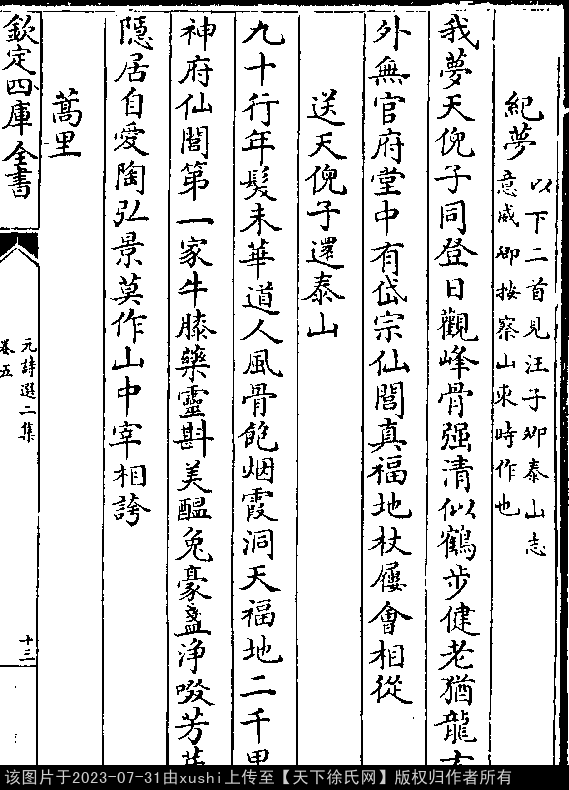 紀夢
以下二首見汪子卿泰山志
意威卿按察山東時作也
我夢天倪子同登日觀峰骨强清似鶴步健老猶龍
外無官府堂中有岱宗仙閭真福地杖屨會相從
送天倪子還泰山
九十行年髮未華道人風骨飽烟霞洞天福地二千里
神府仙閭第一家牛膝藥靈斟美醞兔豪盞浄啜芳
隱居自愛陶弘景莫作山中宰相誇
蒿里
欽定四庫全書
元詩選二集
卷五
十三
该图片于2023-07-31由xushi上传至【天下徐氏网】版权归作者所有